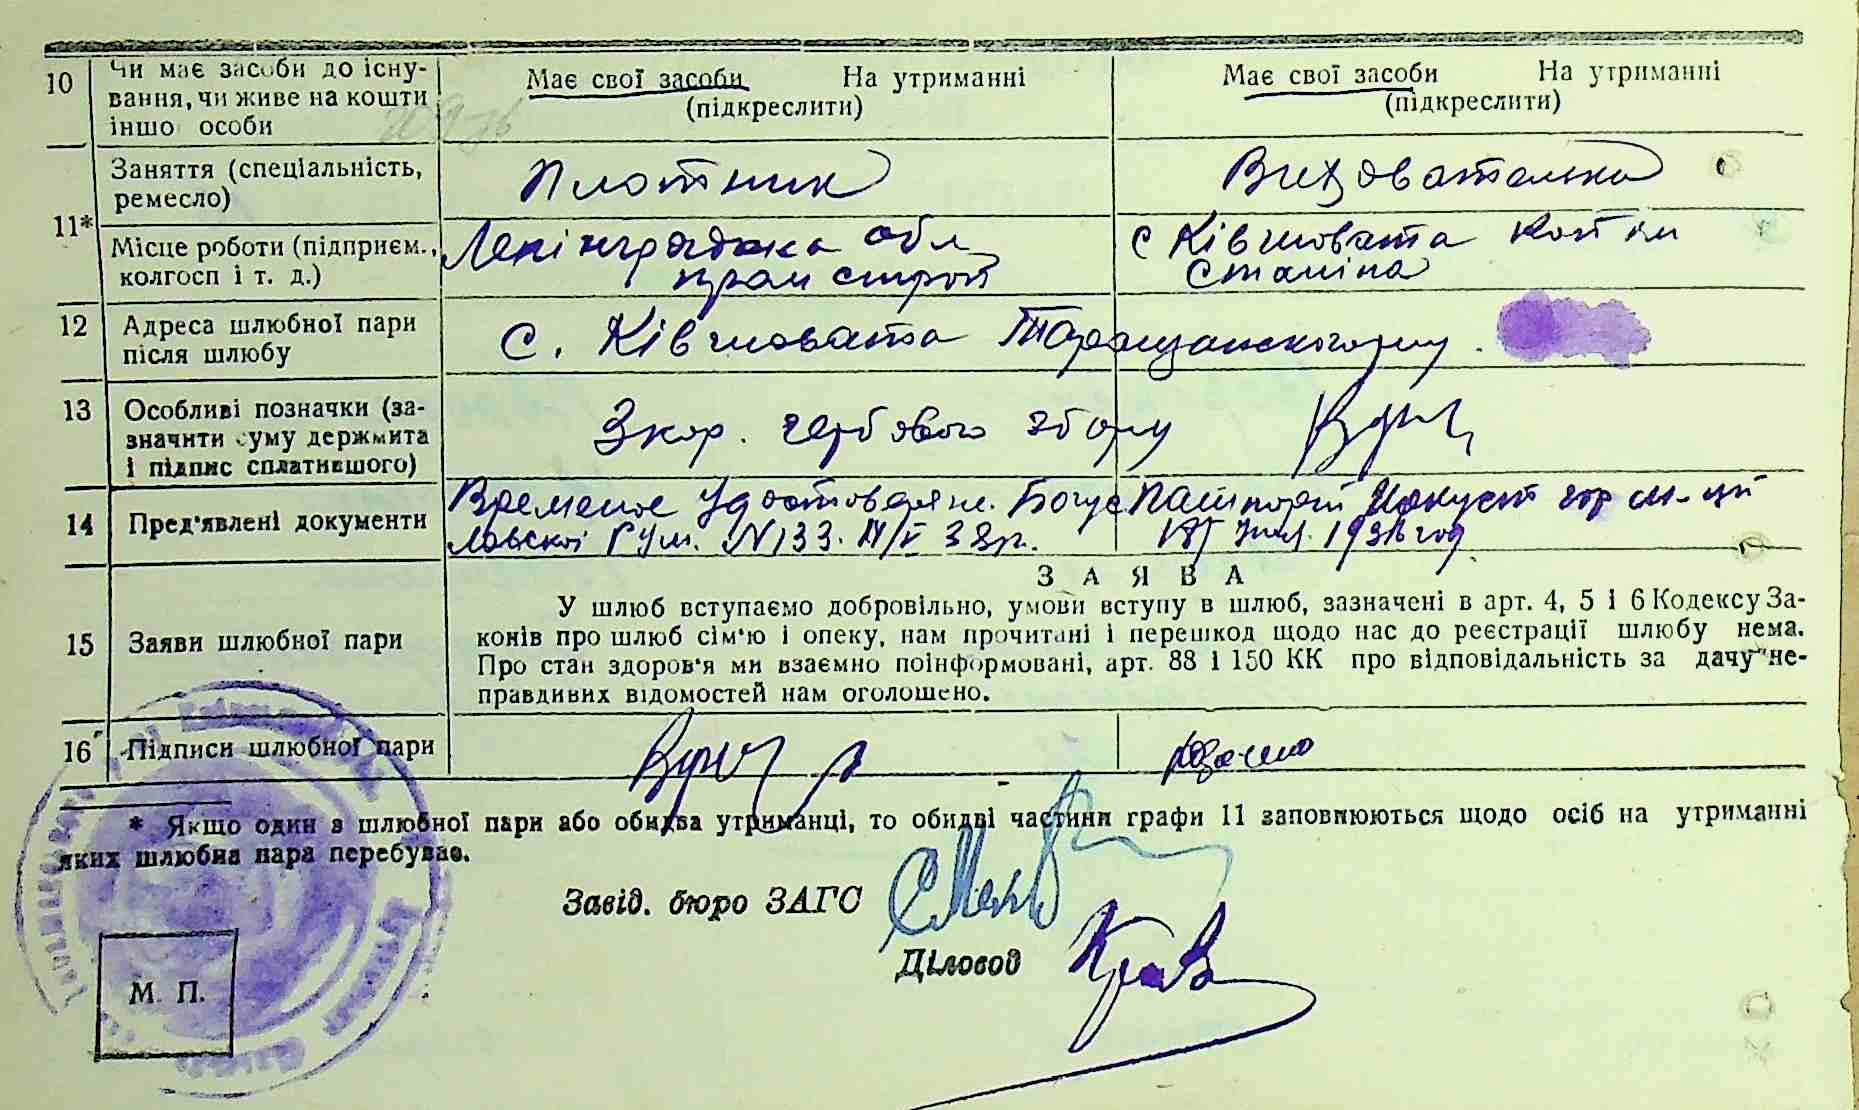 10 Чи має засоби до існу-
вання, чи живе на кошти
іншо особи
Має свої засоби На утриманні
(підкреслити)
Має свої засоби На утриманні
(підкреслити)
11* Заняття (спеціальність,
ремесло)
Плотник
Вихователька
Місце роботи (підприєм.,
колгосп і т. д.)
Ленінградська обл
пром строй
с Ківшовата
Сталіна
12 Адреса шлюбної пари
після шлюбу
с. Ківшовата
13 Особливі позначки (за-
значити суму держмита
і підпис сплатившого)
Зкор. гербового збору
14 Пред'явлені документи
Временое Удостоверен. Богус
лавской N133. 38р.
Пашпорт
15 Заяви шлюбної пари
ЗАЯВА
У шлюб вступаємо добровільно, умови вступу в шлюб, зазначені в арт. 4, 5 і 6 Кодексу За-
конів про шлюб сім'ю і опеку, нам прочитані і перешкод щодо нас до реєстрації шлюбу нема.
Про стан здоров'я ми взаємно поінформовані, арт. 88 і 150 КК про відповідальність за дачу не-
правдивих відомостей нам оголошено.
16 Підписи шлюбної пари
* Якщо один з шлюбної пари або обидва утриманці, то обидві частини графи 11 заповнюються щодо осіб на утриманні
яких шлюбна пара перебуває.
Завід. бюро ЗАГС
Діловод
М. П.